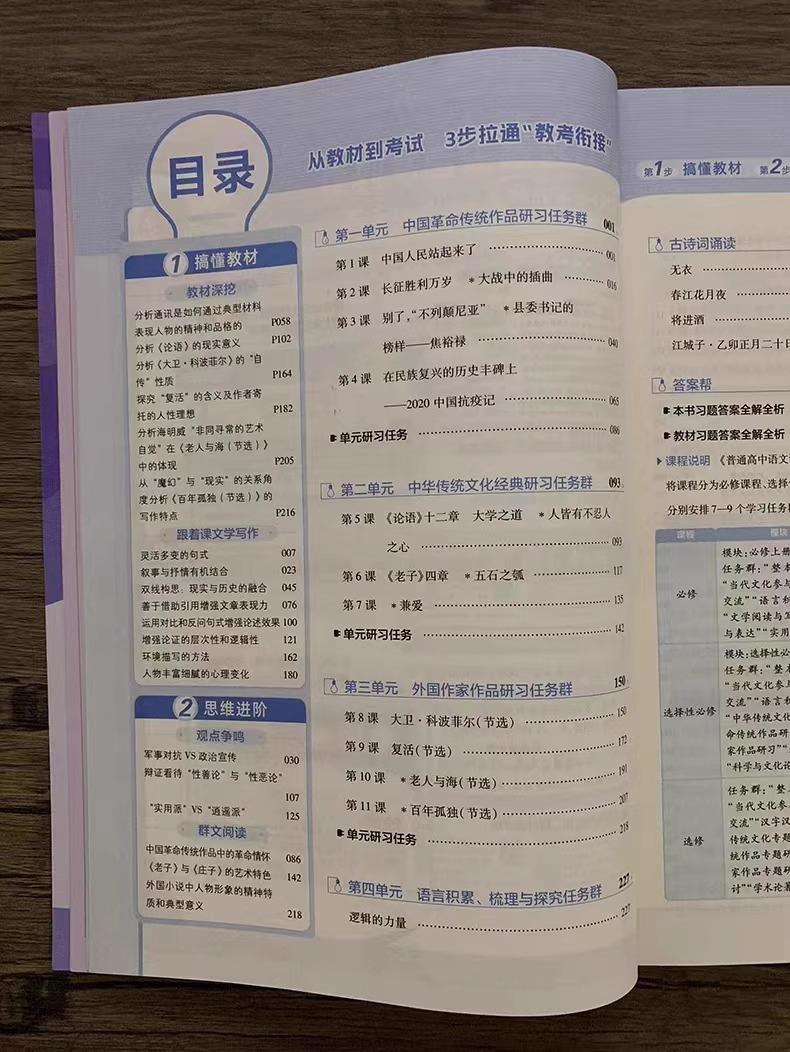 目录
从教材到考试 3步拉通“教考衔接”
1 搞懂教材
教材深挖
分析通讯是如何通过典型材料
表现人物的精神和品格的 P058
分析《论语》的现实意义 P102
分析《大卫·科波菲尔》的“自
传”性质 P164
探究“复活”的含义及作者寄
托的人性理想 P182
分析海明威“非同寻常的艺术
自觉”在《老人与海（节选）》
中的体现 P205
从“魔幻”与“现实”的关系角
度分析《百年孤独（节选）》的
写作特点 P216
跟着课文学写作
灵活多变的句式 007
叙事与抒情有机结合 023
双线构思：现实与历史的融合 045
善于借助引用增强文章表现力 076
运用对比和反问句式增强论述效果 100
增强论证的层次性和逻辑性 121
环境描写的方法 162
人物丰富细腻的心理变化 180
2 思维进阶
观点争鸣
军事对抗VS政治宣传 030
辩证看待“性善论”与“性恶论”
107
“实用派”VS“逍遥派” 125
群文阅读
中国革命传统作品中的革命情怀 086
《老子》与《庄子》的艺术特色 142
外国小说中人物形象的精神特
质和典型意义 218
第一单元 中国革命传统作品研习任务群 001
第1课 中国人民站起来了 001
第2课 长征胜利万岁 *大战中的插曲 016
第3课 别了，“不列颠尼亚” *县委书记的
榜样——焦裕禄 040
第4课 在民族复兴的历史丰碑上
——2020中国抗疫记 065
单元研习任务 086
第二单元 中华传统文化经典研习任务群 093
第5课 《论语》十二章 大学之道 *人皆有不忍人
之心 093
第6课 《老子》四章 *五石之瓠 117
第7课 *兼爱 135
单元研习任务 142
第三单元 外国作家作品研习任务群 150
第8课 大卫·科波菲尔（节选） 150
第9课 复活（节选） 172
第10课 *老人与海（节选） 191
第11课 *百年孤独（节选） 207
单元研习任务 218
第四单元 语言积累、梳理与探究任务群 227
逻辑的力量 227
第1步 搞懂教材 第2步
古诗词诵读
无衣
春江花月夜
将进酒
江城子·乙卯正月二十日
答案帮
本书习题答案全解全析
教材习题答案全解全析
课程说明 《普通高中语文
将课程分为必修课程、选择
分别安排7—9个学习任务
课程 模块
必修
模块：必修上册
任务群：“整本
“当代文化参与
交流”“语言积
“文学阅读与写
与表达”“实用
选择性必修
模块：选择性必
任务群：“整本
“当代文化参与
交流”“语言积
“中华传统文化
命传统作品研
家作品研习”“
“科学与文化论
选修
任务群：“整
“当代文化参
交流”“汉字汉
传统文化专题
统作品专题研
家作品专题研
讨”“学术论著